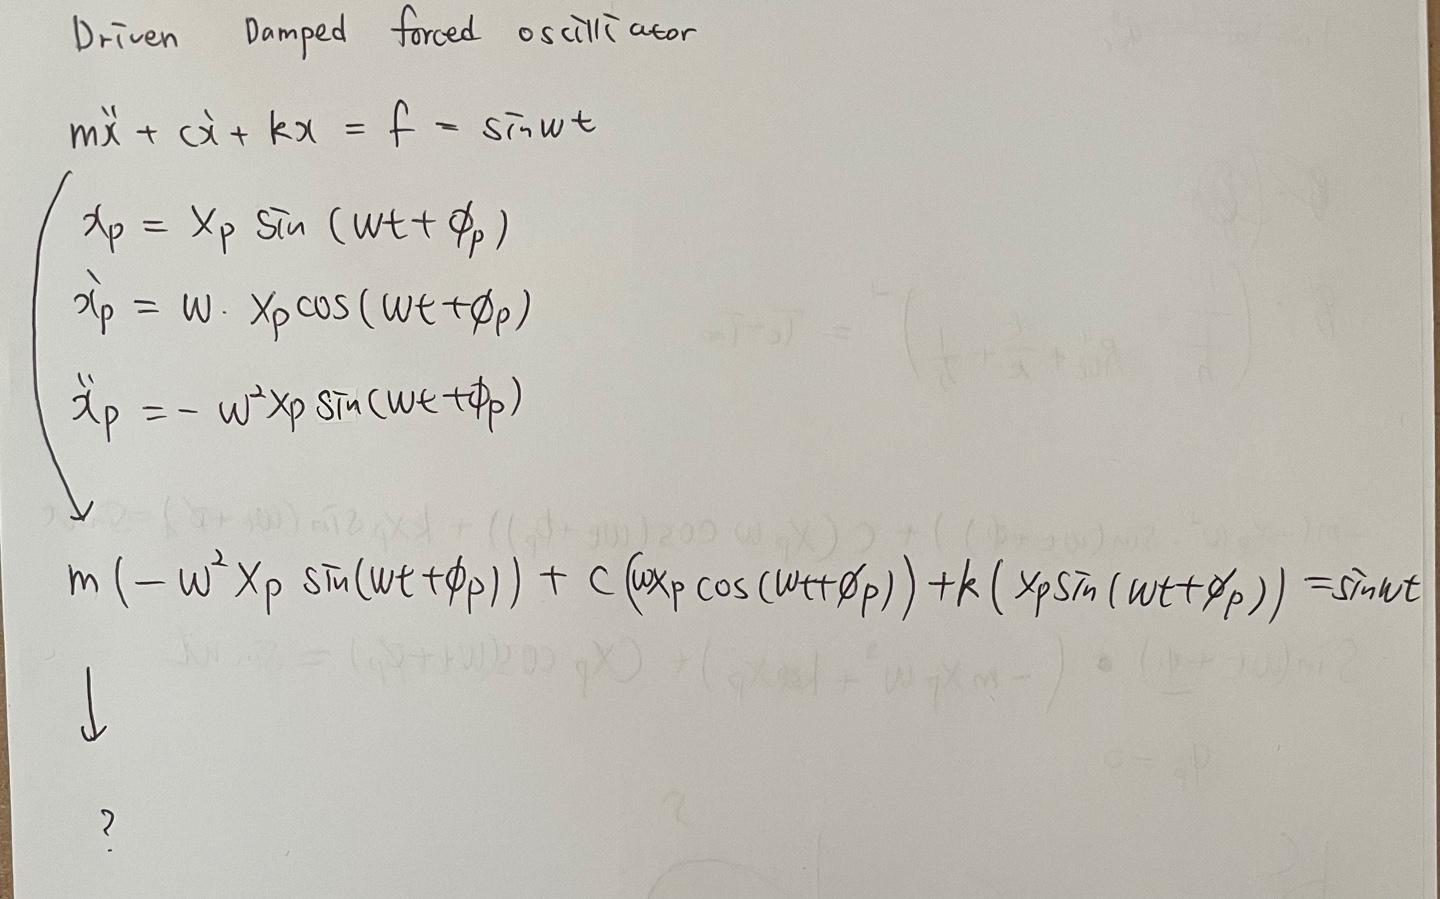 Driven Damped forced oscilliator
mẍ + cẋ + kx = f - sinwt
xp = Xp sin (wt + ϕp)
ẋp = w · Xp cos(wt + ϕp)
ẍp = - w²Xp sin(wt + ϕp)
m (- w² Xp sin(wt + ϕp)) + c (wXp cos (wt + ϕp)) + k ( Xp sin (wt + ϕp)) = sinwt
?